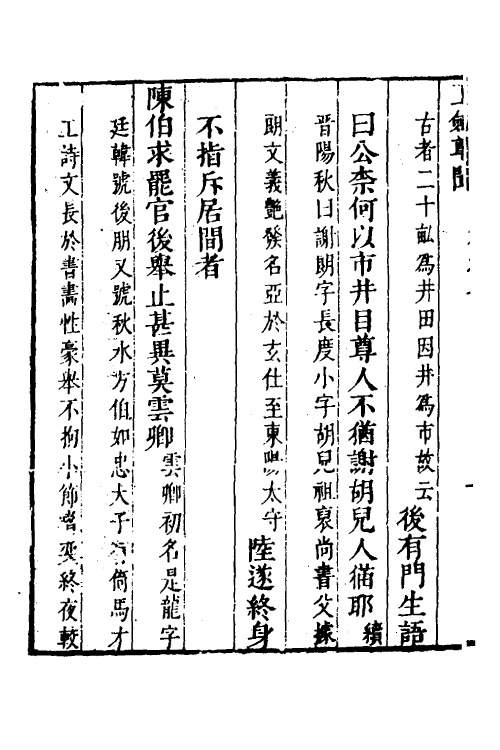 古者二十畝為井田因井為市故云後有門生語
曰公柰何以市井目尊人不猶謝胡兒人猫耶續
晋陽秋曰謝朗字長度小字胡兒祖裒尚書父據
朗文義艷發名亞於玄仕至東陽太守陸遂終身
不指斥居間者
陳伯求罷官後舉止甚異莫雲卿雲卿初名是龍字
廷韓號後朋又號秋水方伯如忠大子倚馬才
工詩文長於書畵性豪舉不拘小節嘗終夜較